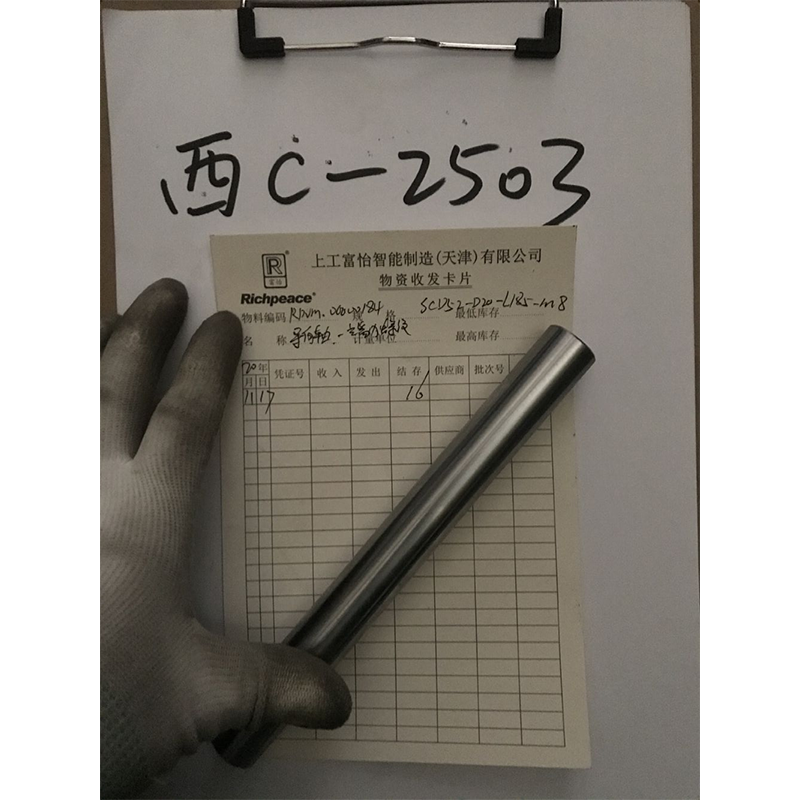 西C-2503
R
富怡
Richpeace®
上工富怡智能制造(天津)有限公司
物资收发卡片
物料编码 规格 最低库存
名称 计量单位 最高库存
20年 凭证号 收入 发出 结存 供应商 批次号
月 日
11 17 16